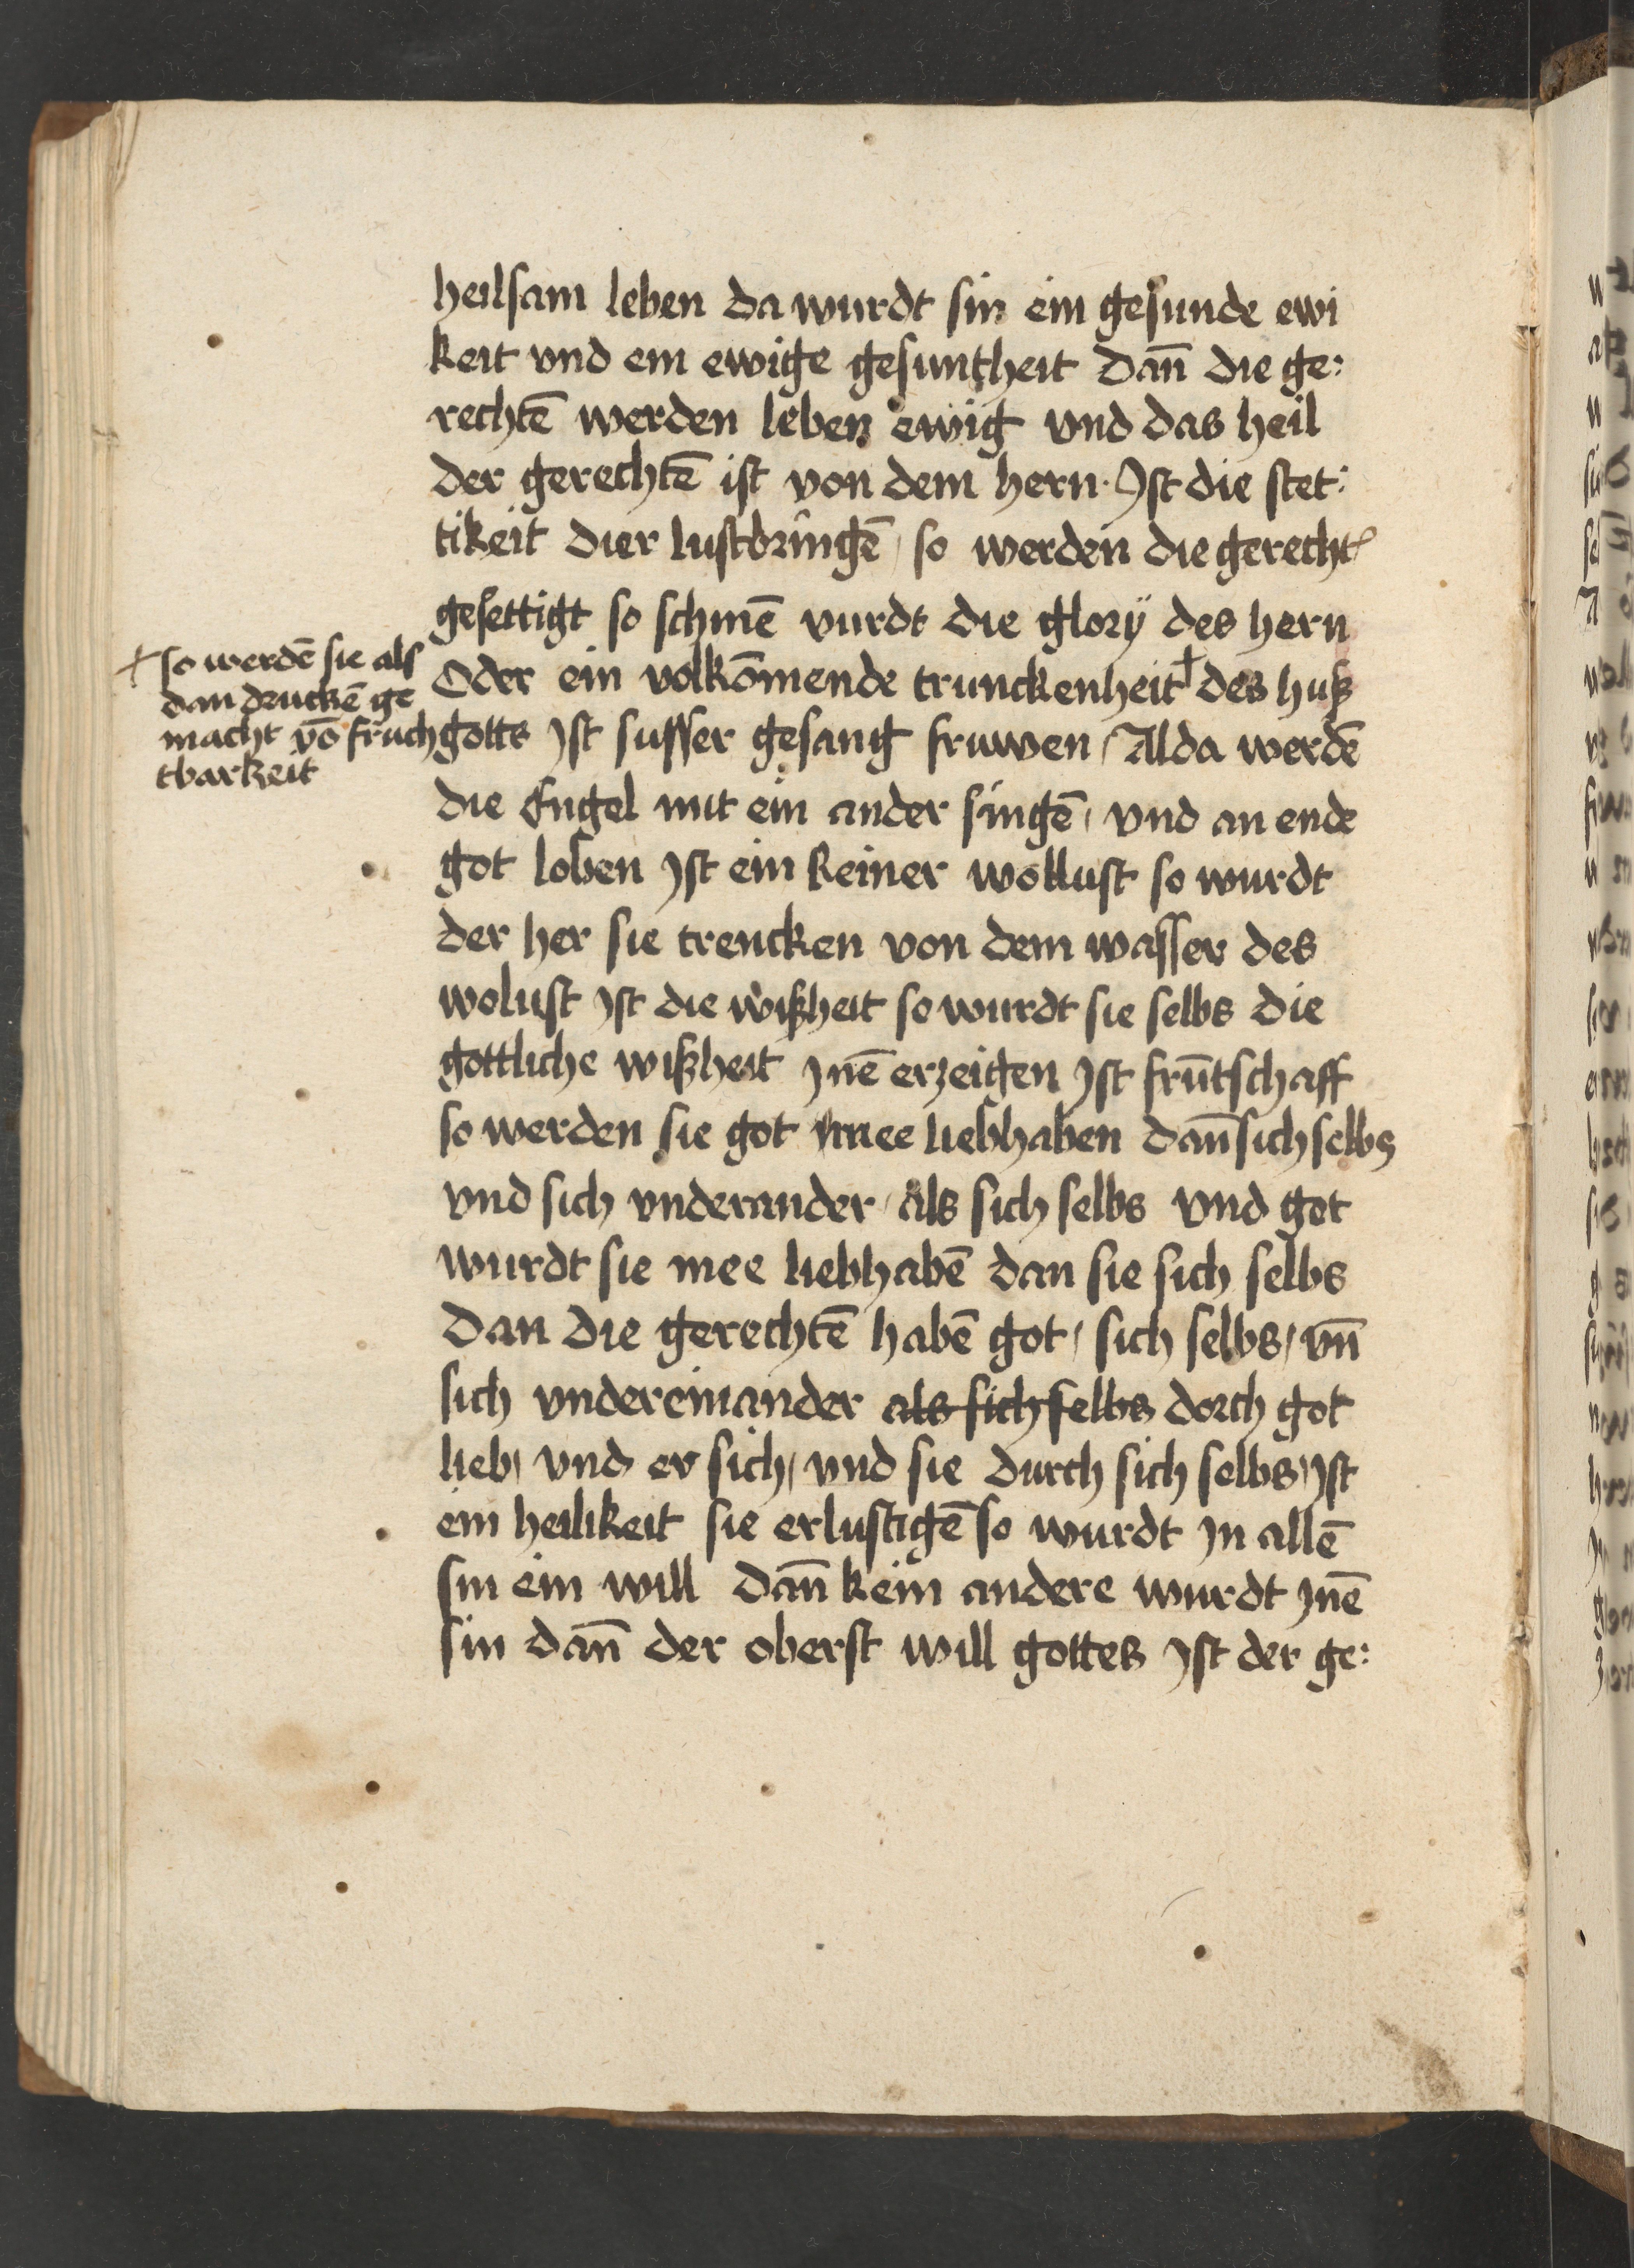 heilsam leben da wurdt sin ein gesunde ewi
keit vnd ein ewige gesuntheit dan̄ die ge:
rechtē werden leben ewig vnd das heil
der gerechtē ist von dem hern. Ist die stet:
tikeit dier lustbringē / so werden die gerecht
gesettigt so schinē vurdt die glorÿ des hern
Oder ein volkōmende trunckenheit† des huß
gotts Ist susser gesang fruwen / Alda werdē
die Engel mit ein ander singē / vnd an ende
got loben Ist ein keiner wollust so wurdt
der her sie trencken von dem wasser des
wolust Ist die wißheit so wurdt sie selbs die
gottliche wißheit Inē erzeigen Ist frūtschaff
so werden sie got mee liebhaben dan̄ sich selbs
vnd sich vnderander / als sich selbs vnd got
wurdt sie mee liebhabē dan sie sich selbs
Dan die gerechtē habē got / sich selbs / vn̄
sich vndereinander als sich selbs dorch got
lieb / vnd er sich / vnd sie durch sich selbs / Ist
ein heilikeit sie erlustigē so wurdt In allē
sin ein will dan̄ kein andere wurdt Inē
sin dan̄ der oberst will gottes Ist der ge:
† so werdē sie als
dan drucke̅ ge
macht vō fruch
tbarkeit